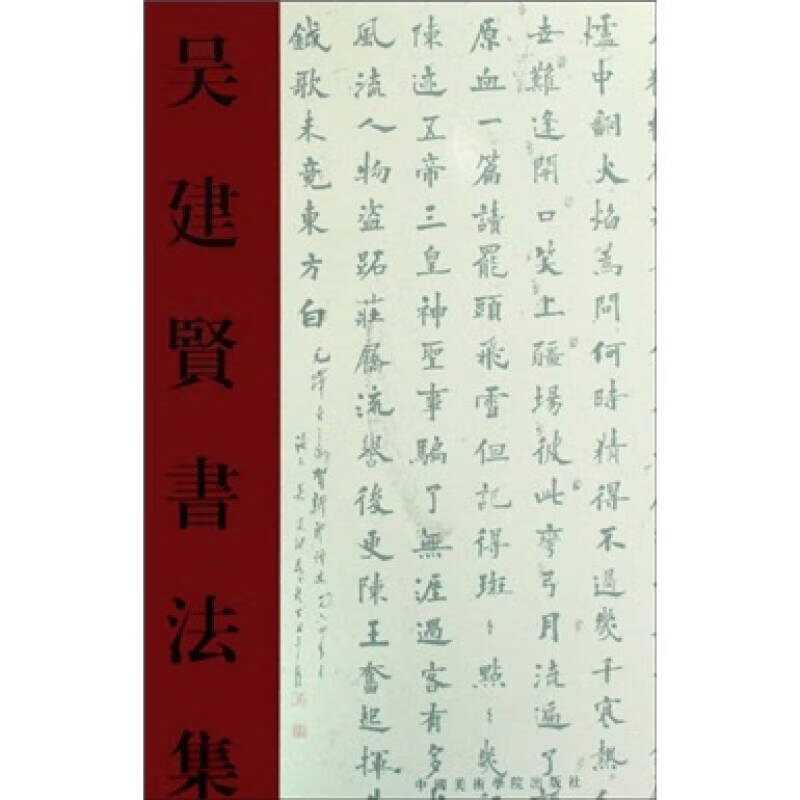 吴建賢書法集
爐中翻火焰為問何時猜得不過幾千寒熱
世難逢開口笑上疆場彼此彎弓月流遍了
原血一篇讀罷頭飛雪但記得斑々點々幾
陳迹五帝三皇神聖事騙了無涯過客有多
風流人物盜跖莊蹻流譽後更陳王奮起揮
鉞歌未竟東方白
中國美術學院出版社